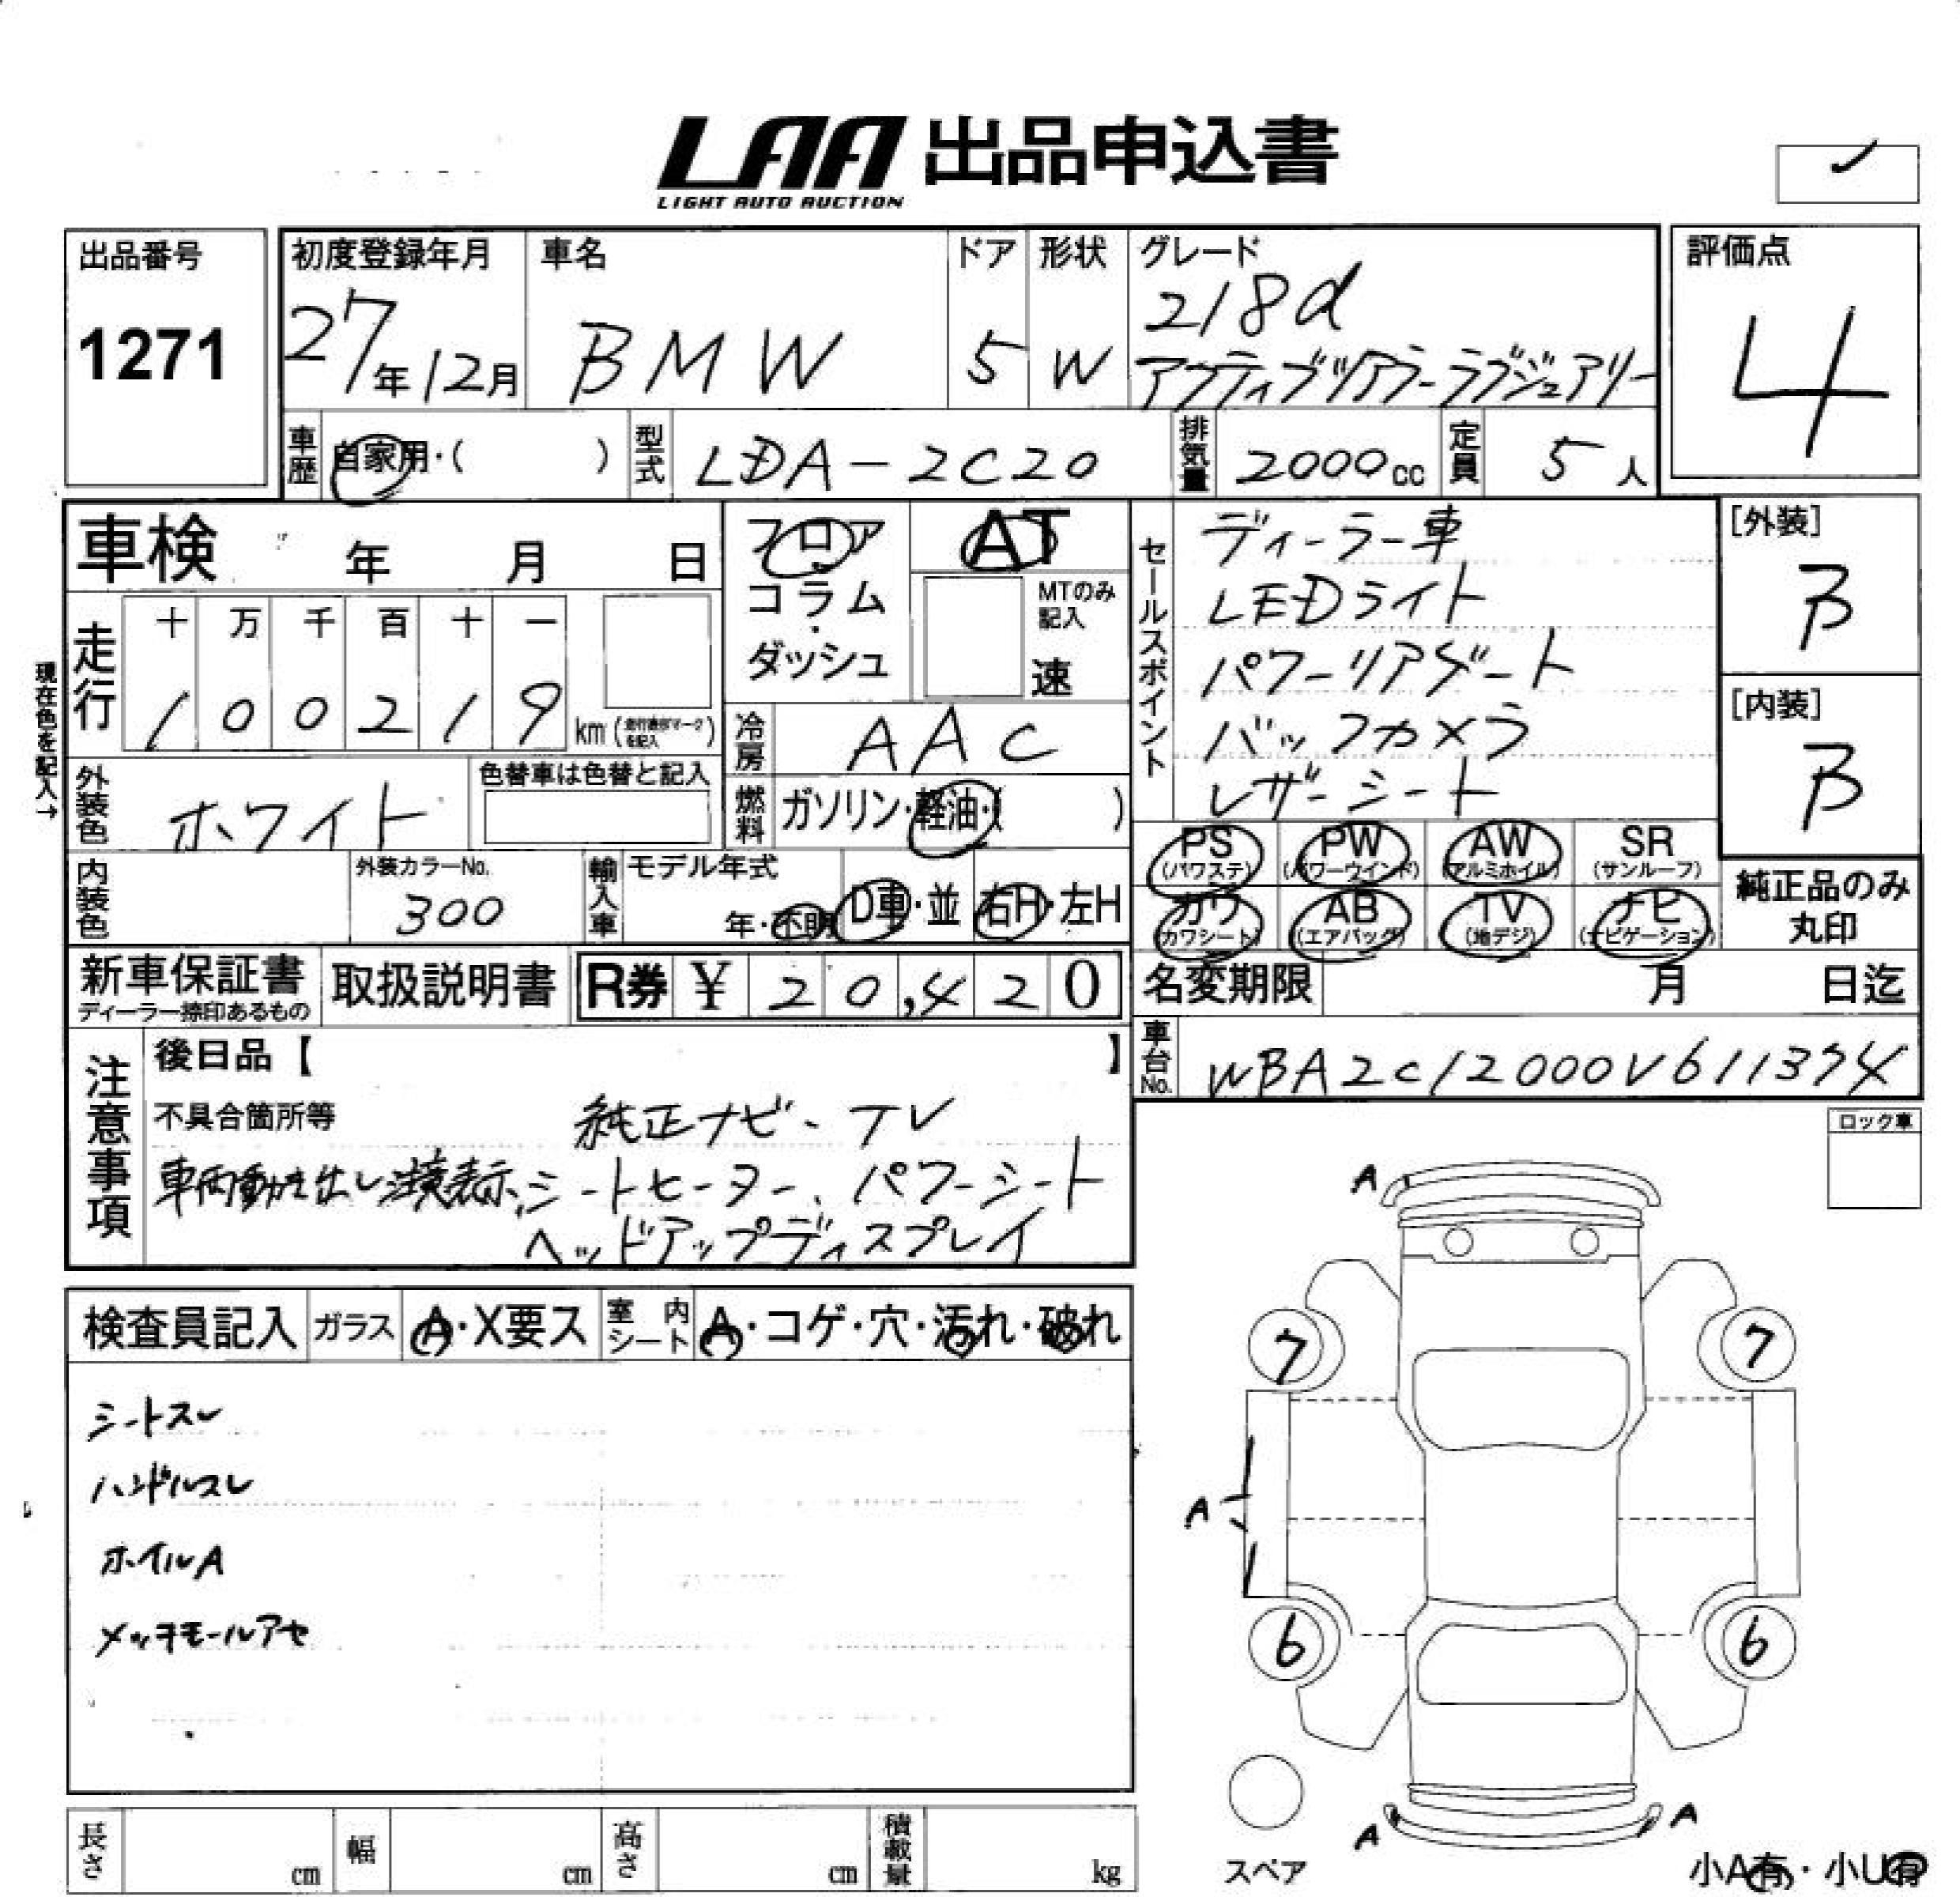 LAA 出品申込書
LIGHT AUTO AUCTION
出品番号
1271
初度登録年月
27年12月
車名
BMW
ドア
5
形状
W
グレード
218d
アクティブツアラーラグジュアリー
評価点
4
車歴 自家用・( )
型式 LDA-2C20
排気量 2000cc
定員 5人
車検 年 月 日
フロア
コラム
・
ダッシュ
AT
MTのみ
記入
速
現在色を記入→
走行
十 万 千 百 十 一
1 0 0 2 1 9 km
冷房 AAC
外装色 ホワイト
色替車は色替と記入
燃料 ガソリン・軽油・( )
内装色
外装カラーNo.
300
輸入車
モデル年式
年・不明
D車・並
右H・左H
セールスポイント
ディーラー車
LEDライト
パワーリアゲート
バックカメラ
レザーシート
[外装]
B
[内装]
B
PS (パワステ)
PW (パワーウインド)
AW (アルミホイル)
SR (サンルーフ)
カワ (カワシート)
AB (エアバッグ)
TV (地デジ)
ナビ (ナビゲーション)
純正品のみ
丸印
新車保証書
ディーラー捺印あるもの
取扱説明書
R券 ¥ 20,420
名変期限 月 日迄
車台No. WBA2C12000V611374
注意事項
後日品【 】
不具合箇所等
純正ナビ、TV
車両動き出し 表示、シートヒーター、パワーシート
ヘッドアップディスプレイ
ロック車
検査員記入
ガラス A・X要ス
室内シート A・コゲ・穴・汚れ・破れ
シートスレ
ハンドルスレ
ホイルA
メッキモールアセ
A
7 7
A
6 6
A A
スペア
小A有・小U有
長さ cm
幅 cm
高さ cm
積載量 kg